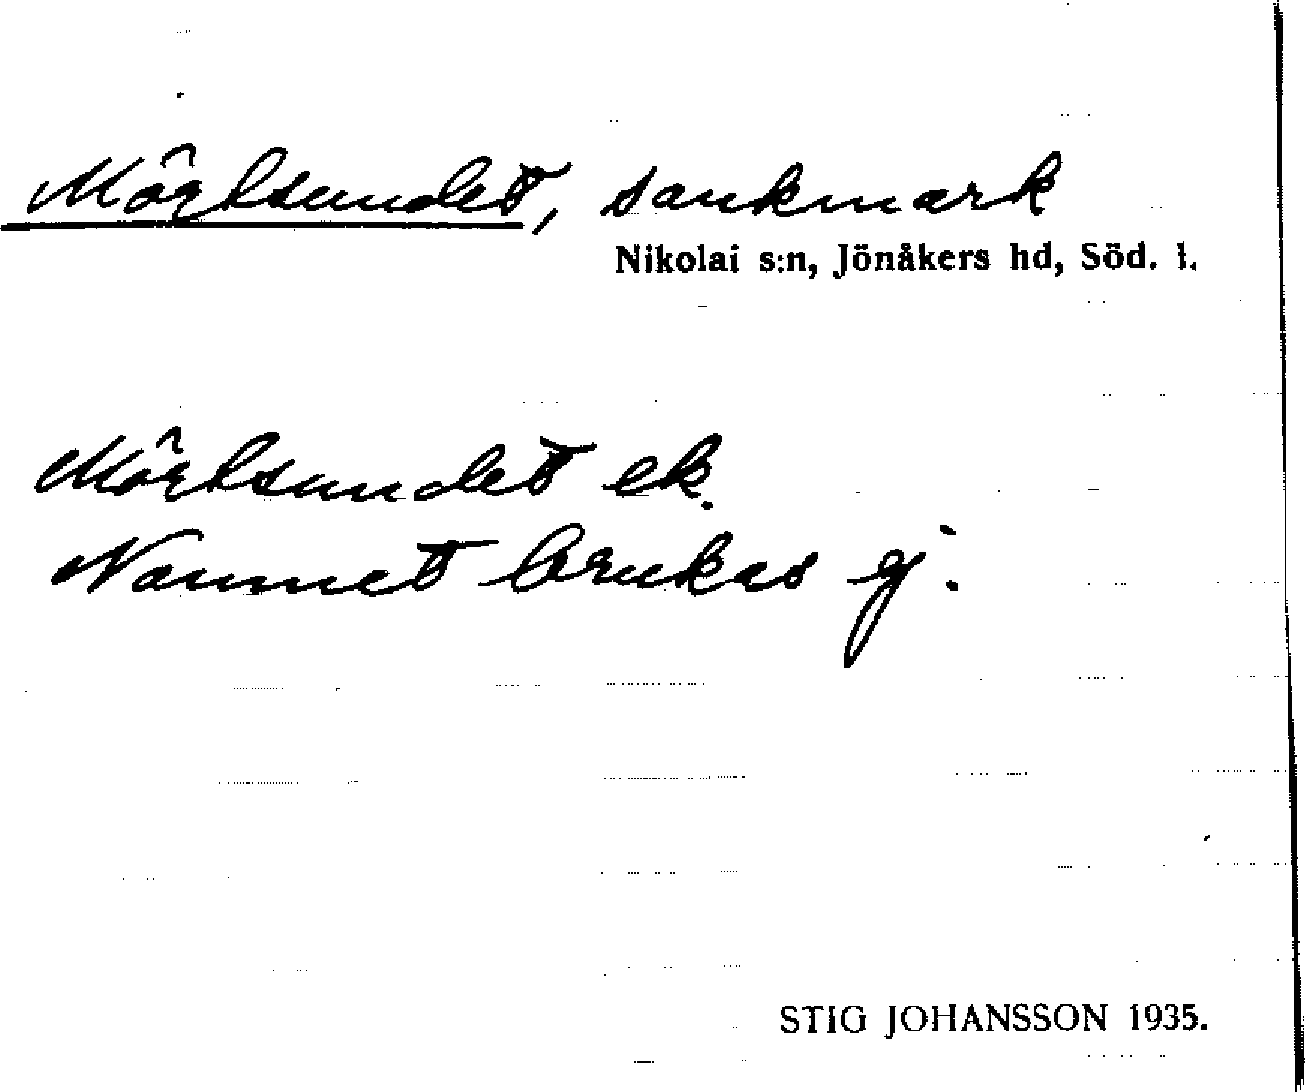 Mörtsundet, sankmark
Nikolai s:n, Jönåkers hd, Söd. l.
Mörtsundet ek.
Namnet brukas ej.
STIG JOHANSSON 1935.